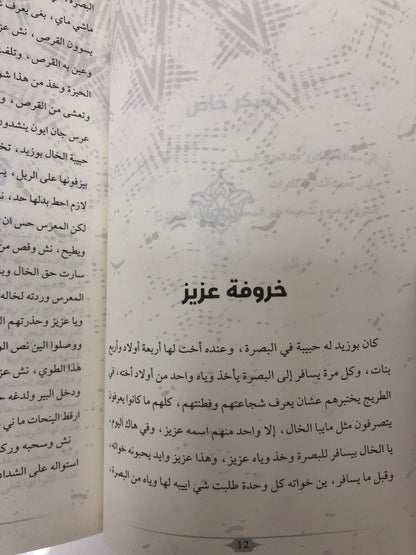 خروفة عزيز
كان بوزيد له حبيبة في البصرة، وعنده أخت لها أربعة أولاد وأربع
بنات، وكل مرة يسافر إلى البصرة يأخذ وياه واحد من أولاد أخته، في
الطريج يختبرهم عشان يعرف شجاعتهم وفطنتهم، كلهم ما كانوا يعرفون
يتصرفون مثل مايبا الخال، إلا واحد منهم اسمه عزيز، وفي هاك اليوم،
يا الخال بيسافر للبصرة وخذ وياه عزيز، وهذا عزيز وايد يحبونه خواته،
وقبل ما يسافر، ين خواته كل وحدة طلبت شي اييبه لها وياه من البصرة،
12
ماشي ماي، بغى يعرف
يسوون القرص، نش عز
وعين به القرص، وتلفت
الحيزة وخذ من هذا شو
وتعشى من القرص، و
عرس جان ايون ينشدون
حبيبة الخال بوزيد، تخ
بيزفونها على الريل، يس
لازم احط بدلها حد،
لكن المعرس حس ان
ويطيح، نش وقص من
سارت حق الخال ويا
المعرس وردته لخاله
ويا عزيز وحذرتهم ال
ووصلوا الين نص الو
هذا الطوي، نش عزيز
ودخل البير ولدغه ح
ارقط الينحات ما يرو
نش وسحبه وركبه
استواله على الشداد